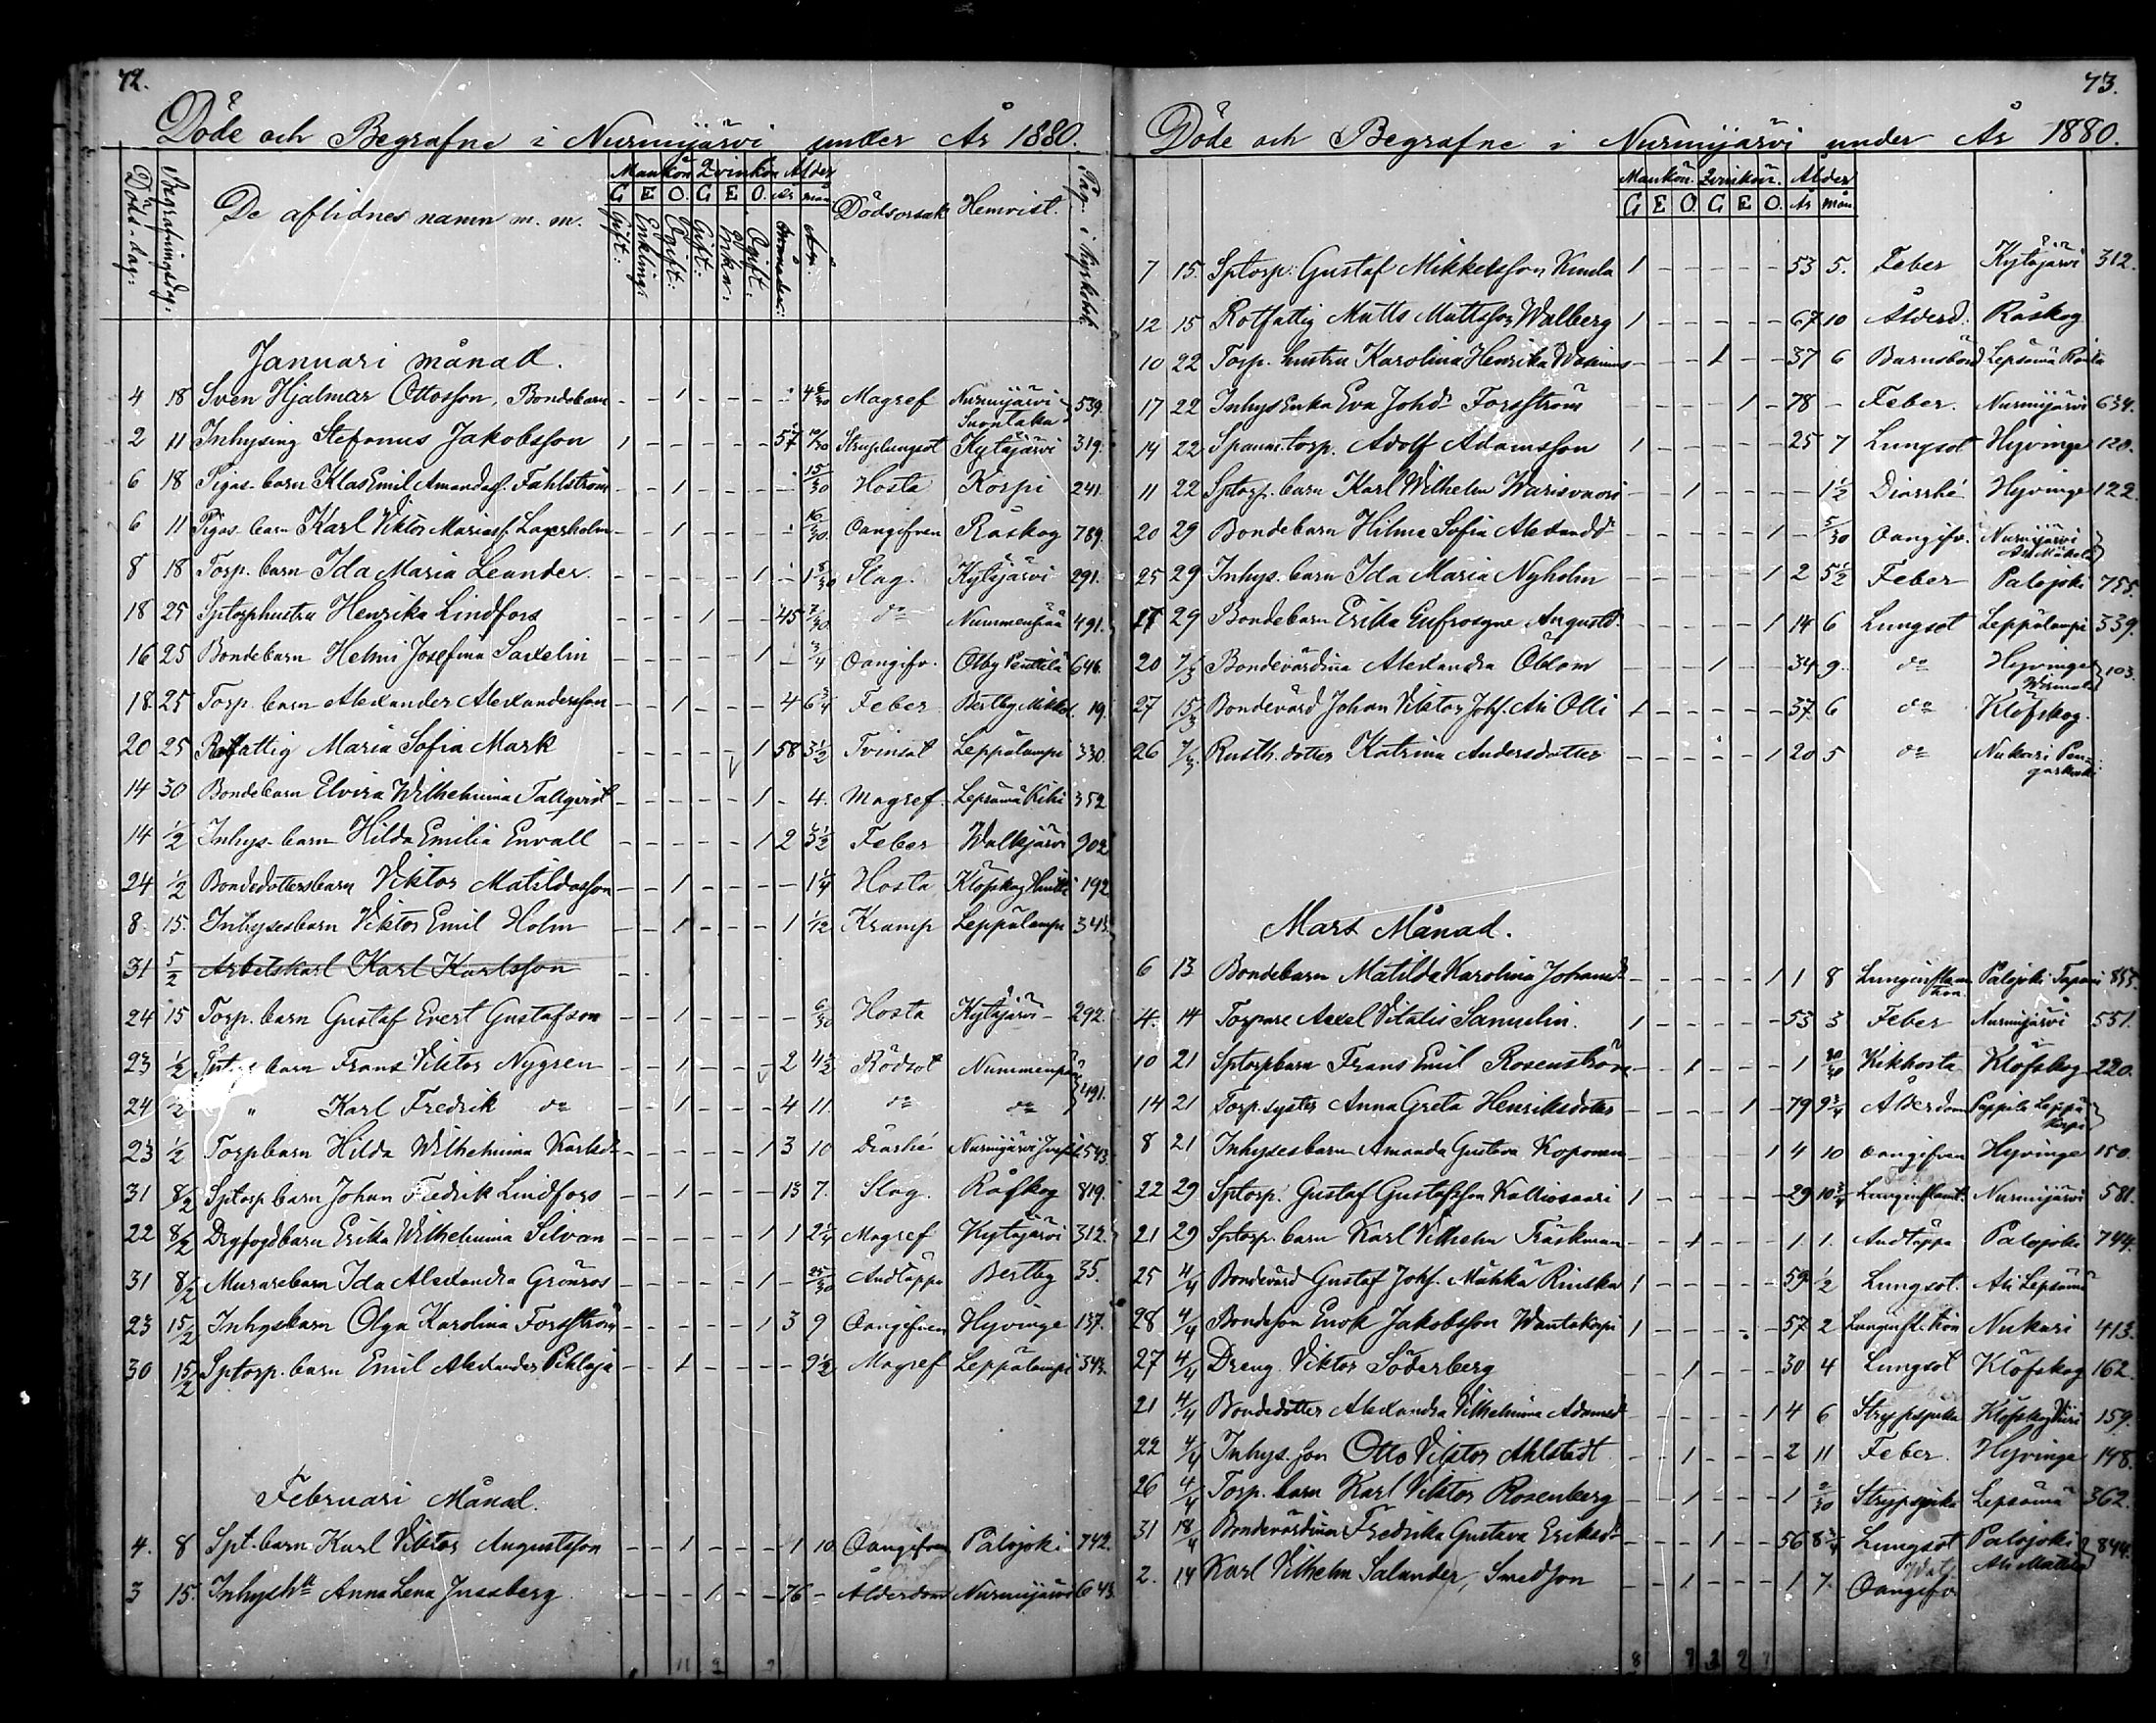 72.
Döde och Begrafne i Nurmijärvi under År 1880.
Döds-dag: Begrafningsdag: De aflidnes namn m. m. Mankön Qvinkön Ålder Dödsorsak Hemvist. Pag. i kyrkobok
G E O. G E O. år mån
Gift: Enkling: Ogift: Gift: Enka: Ogift:
Januari månad.
4 18 Sven Hjalmar Ottosson, Bondebarn - - 1 - - - - 4 6/30 Magref Nurmijärvi Suontaka 539.
2 11 Inhysing Stefanus Jakobsson 1 - - - - - 57 10/30 Struplungsot Kytäjärvi 319.
6 18 Pigas-barn Klas Emil Amandas. Fahlström - - 1 - - - - 15/30 Hosta Korpi 241
6 11 Pigas-barn Karl Viktor Marias. Lagerholm - - 1 - - - - 16/30 Oangifven Råskog 789.
8 18 Torp. barn Ida Maria Leander. - - - - - 1 - 1 8/30 Slag. Kytäjärvi 291.
18 25 Sptorphustru Henrika Lindfors - - - 1 - - 45 7/30 do Nummenpää 491.
16 25 Bondebarn Helmi Josefina Saxelin - - - - - 1 - 3/4 Oangifv. Olby Penttilä 646.
18. 25 Torp. barn Alexander Alexandersson - - 1 - - - 4 6 3/4 Feber Bertby Mikkol. 19.
20 25 Rotfattig Maria Sofia Mark - - - - - 1 58 3 1/2 Tvinsot Leppälampi 330.
14 30 Bondebarn Elvira Wilhelmina Tallqvist - - - - - 1 - 4. Magref Lepsämä Kihi 352
14 1/2 Inhys-barn Hilda Emilia Envall - - - - - 1 2 3 1/2 Feber Walkjärvi 902
24 1/2 Bondedottersbarn Viktor Matildasson - - 1 - - - - 1 1/4 Hosta Klöfskog 192
8. 15. Inhysesbarn Viktor Emil Holm - - 1 - - - 1 1/12 Kramp Leppälampi 343.
31 5/2 Arbetskarl Karl Karlsson -
24 15 Torp. barn Gustaf Evert Gustafson - - 1 - - - - 6/30 Hosta Kytäjärvi - 292.
23 1/2 barn Frans Viktor Nygren - - 1 - - - 2 4 1/2 Rödsot Nummenpää 491.
24 1/2 " Karl Fredrik do - - 1 - - - 4 11. do do
23 1/2 Torpbarn Hilda Wilhelmina Karlsdr - - - - - 1 3 10 Diarhé Nurmijärvi 543.
31 8/2 Sptorp barn Johan Fredrik Lindfors - - 1 - - - 13 7. Slag. Råskog 819.
22 8/2 Drgfogdbarn Erika Wilhelmina Silvan - - - - - 1 1 2 1/4 Magref Kytäjärvi 312.
31 8/2 Murarebarn Ida Alexandra Grönros - - - - - 1 - 25/30 Andtäppa Bertby 35.
23 15/2 Inhysbarn Olga Karolina Forsström - - - - - 1 3 9 Oangifven Hyvinge 137.
30 15/2 Sptorp. barn Emil Alexander Pihlaja - - 1 - - - - 9 1/2 Magref Leppälampi 343.
Februari Månad.
4. 8 Spt-barn Karl Viktor Augustsson - - 1 - - - 1 10 Oangifven Palojoki 742.
3 15. Inhysh Anna Lena Jussberg - - - 1 - - 76 - Ålderdom Nurmijärvi 643.
73.
Döde och Begrafne i Nurmijärvi under År 1880.
Mankön. Qvinkön. Ålder
G E O. G E O. År mån
7 15. Sptorp: Gustaf Mikkelsson Kunla 1 - - - - - 53 5. Feber Kytäjärvi 312.
12 15 Rotfattig Matts Mattsson Walberg 1 - - - - - 67 10 Ålderd. Råskog
10 22 Torp. hustru Karolina Henrika Wasenius - - - 1 - - 37 6 Barnsbörd Lepsämä
17 22 Inhys Enka Eva Johdr Forsström - - - - 1 - 78 - Feber. Nurmijärvi 634.
14 22 Spanm. torp. Adolf Adamsson 1 - - - - - 25 7 Lungsot Hyvinge 120.
11 22 Sptorp. barn Karl Wilhelm Warisvuori - - 1 - - - - 1 1/2 Diarrhé Hyvinge 122.
20 29 Bondebarn Hilma Sofia Alexandd. - - - - - 1 - 5/30 Oangifv. Nurmijärvi
25 29 Inhys. barn Ida Maria Nyholm - - - - - 1 2 5 1/2 Feber Palojoki 755.
17 29 Bondebarn Erika Eufrosyne Augustd. - - - - - 1 14 6 Lungsot Leppälampi 339.
20 7/3 Bondevärdina Alexandra Öblom - - - 1 - - 34 9. do Hyvinge 103.
27 15/3 Bondevärd Johan Viktor Johs. Ali Olli 1 - - - - - 37 6 do Klöfskog.
26 7/3 Rusth. dotter Katrina Andersdotter - - - - - 1 20 5 do Nukari
Mars Månad.
6 13 Bondebarn Matilda Karolina Johansd. - - - - - 1 1 8 Lunginflammation Palojoki Tapani 855.
4. 14 Torpare Axel Vitalis Samelin. 1 - - - - - 53 3 Feber Nurmijärvi 551.
10 21 Sptorpbarn Frans Emil Rosenström - - 1 - - - 1 20/30 Kikhosta Klöfskog 220.
14 21 Torp. syster Anna Greta Henriksdotter - - - - 1 - 79 9 3/4 Ålderdom
8 21 Inhysesbarn Amanda Gustava Koponen - - - - - 1 4 10 oangifven Hyvinge 150.
22 29 Sptorp. Gustaf Gustafsson Kalliosaari 1 - - - - - 29 10 3/4 Lunginflamt. Nurmijärvi 581.
21 29 Sptorp. barn Karl Vilhelm Träskman - - 1 - - - 1. 1. Andtäppa Palojoki 744.
25 4/4 Bondevärd Gustaf Johs. Mähkä Rinska 1 - - - - - 59 1/2 Lungsot. Ali Lepsämä
28 4/4 Bondeson Enok Jakobsson Wantakorpi 1 - - - - - 57 2 Nukari 413.
27 4/4 Dreng Viktor Söderberg - - 1 - - - 30 4 Lungsot Klöfskog 162.
21 4/4 Bondedotter Alexandra Vilhelmina Adamsd. - - - - - 1 4 6 Strypsjuka Klöfskog 159.
22 4/4 Inhys. son Otto Viktor Ahlstedt - - 1 - - - 2 11 Feber. Hyvinge 148.
26 4/4 Torp. barn Karl Viktor Rosenberg - - 1 - - - 1 2/30 Strypsjuka Lepsämä 362.
31 18/4 Bondevärdinna Fredrika Gustava Eriksdr - - - 1 - - 56 8 3/4 Lungsot Palojoki Ali Mattila 844.
2. 14 Karl Vilhelm Salander, Smedson - - 1 - - - 1 7. Oangifv.